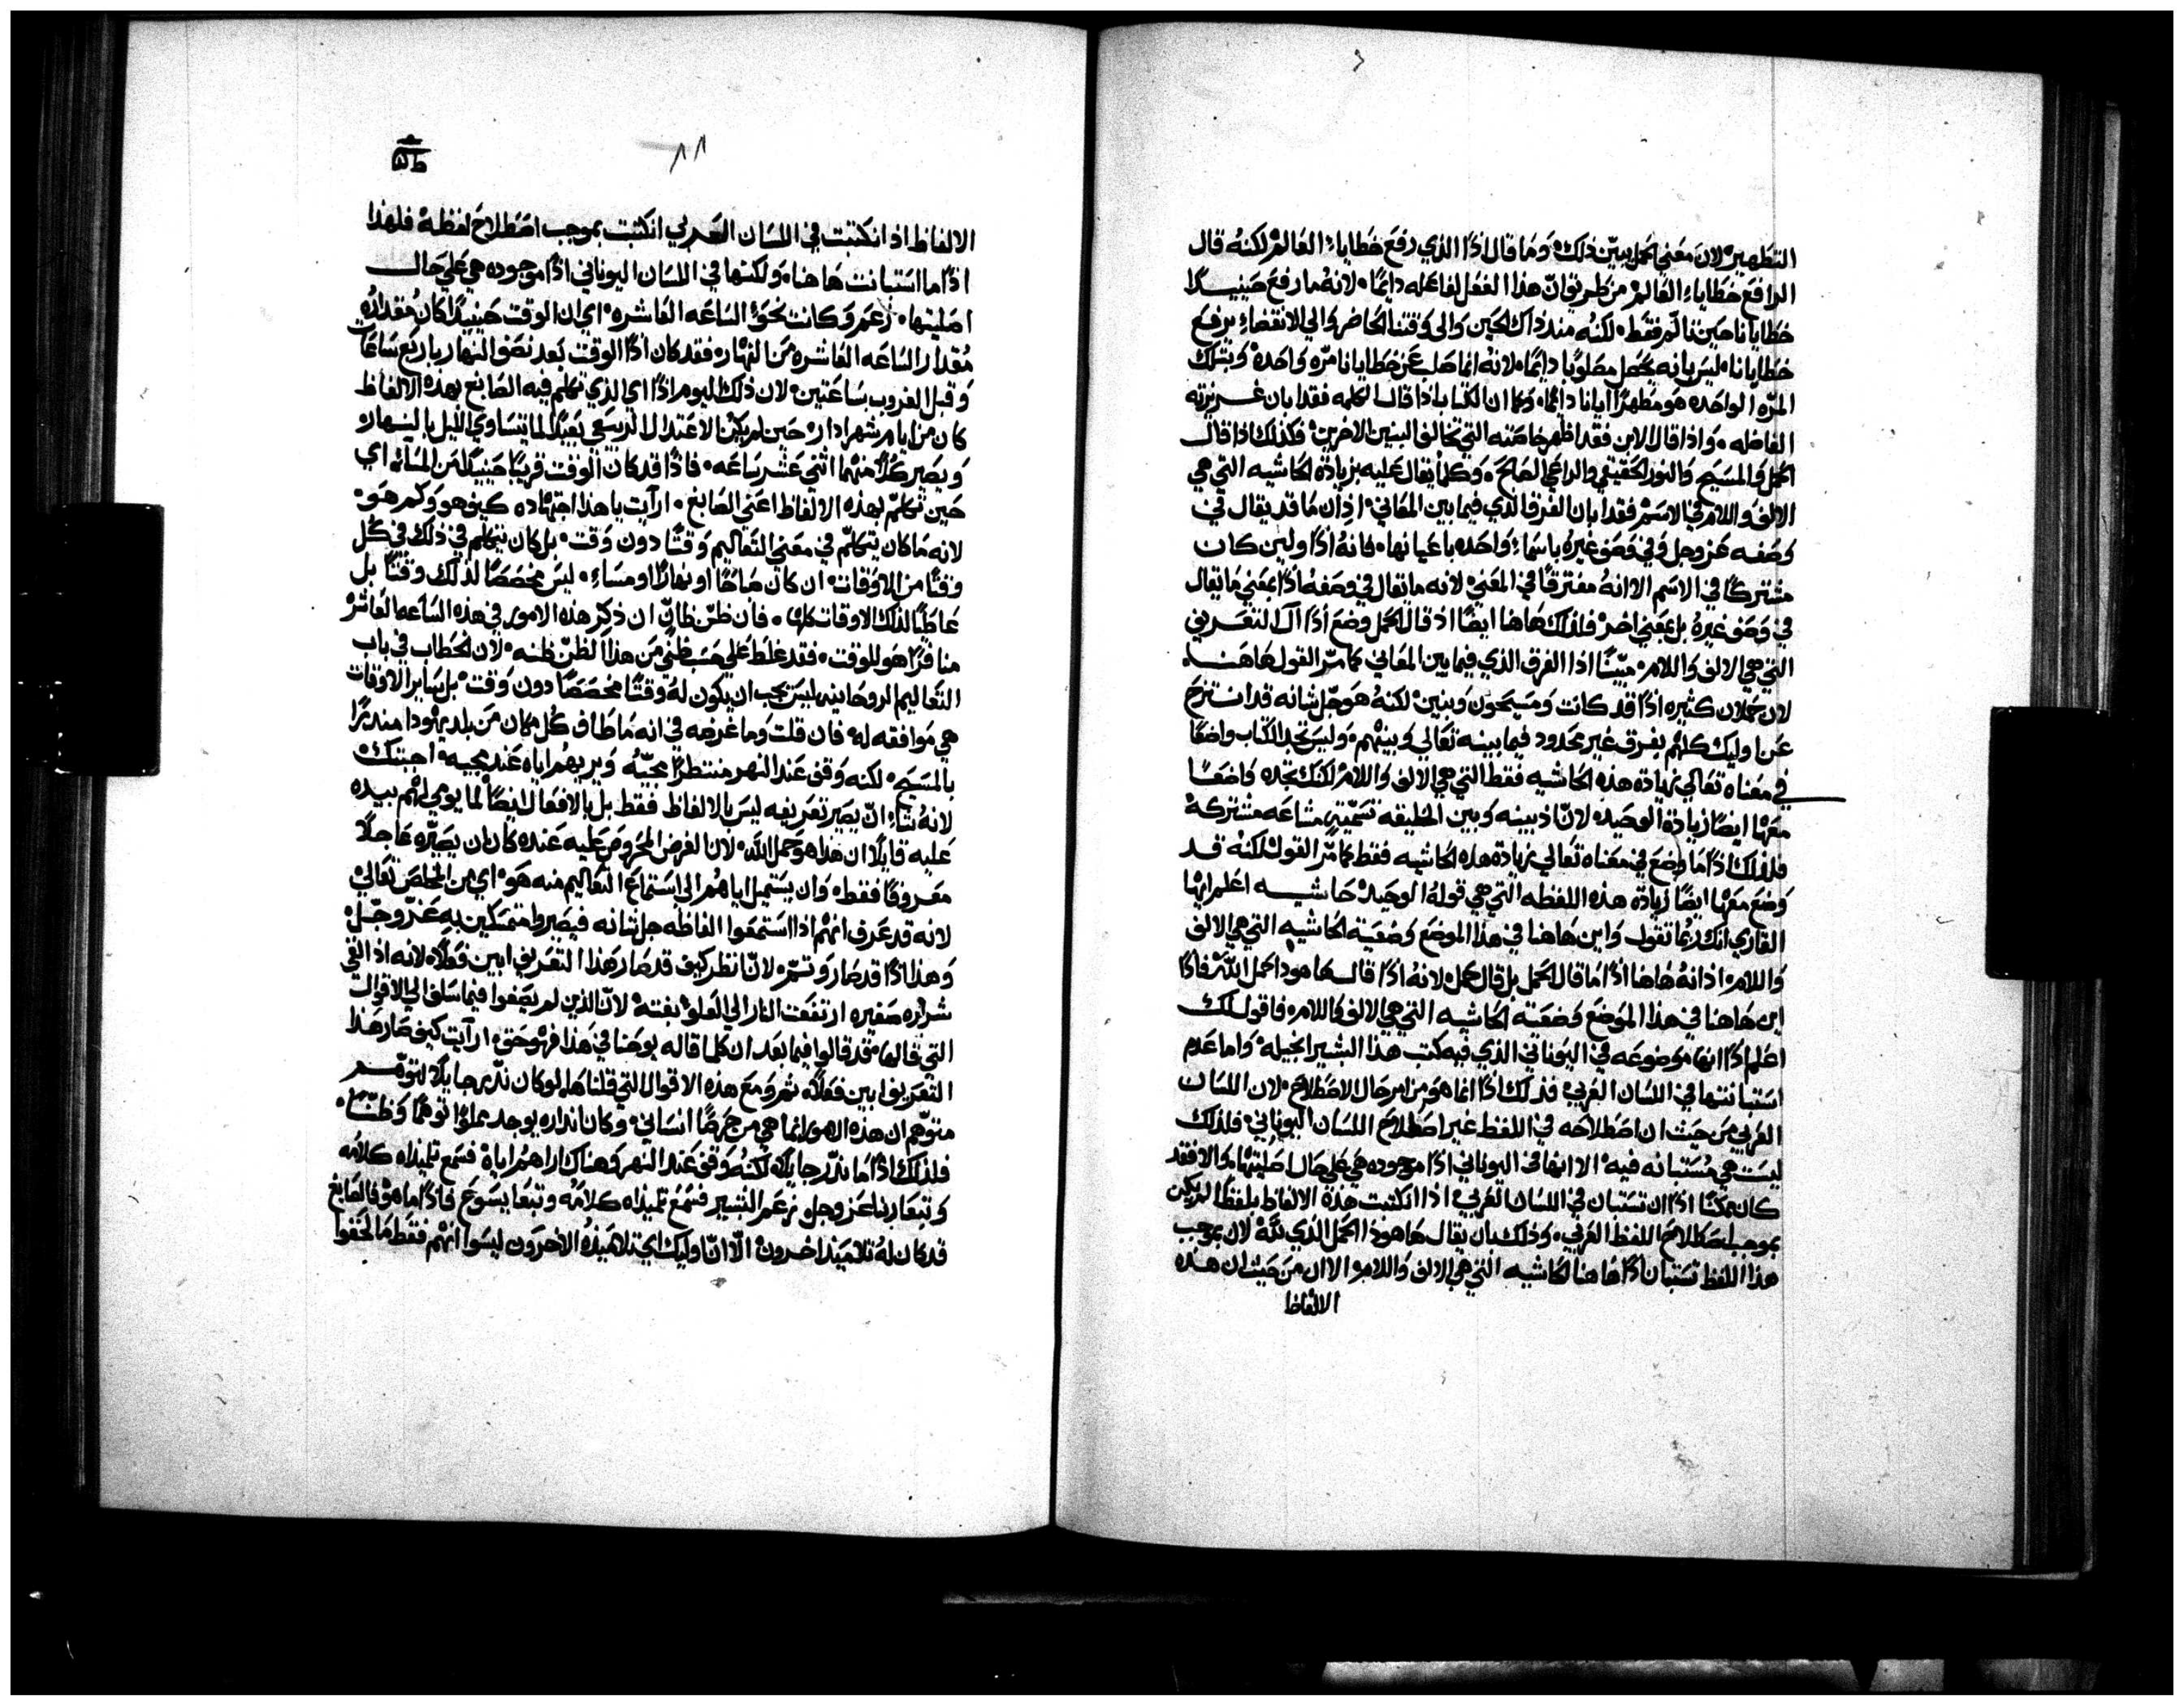 التطهير لان معني الحمل يبين ذلك وما قال اذا الذي رفع خطاياء العالم لكنه قال
الرافع خطاياء العالم من طريق ان هذا الفعل لفاعله دايما لانه ما رفع حينيدا
خطايانا حين تالم فقط لكنه مند ذاك الحين والى وقتنا الحاضر والي الانقضاء يرفع
خطايانا ليس بانه يحصل مصلوبا دايما لانه انما صلب عن خطايانا مره واحده وبتلك
المره الواحده هو مطهرا ايانا دايما وكما ان الكتاب اذا قال الكلمه فقد ابان غريزته
الفاضله واذا قال الابن فقد اظهر خاصته التي تخالف البنين الاخرين فكذلك اذا قال
الحمل والمسيح والنور الحقيقي والراعي الصالح وكلما يقال عليه بزيادة الحاشيه التي هي
الالف واللام في الاسم فقد ابان الفرق الذي فيما بين المعاني اذ ان ما قد يقال في
وصفه عز وجل وفي وصف غيره باسماء واحده باعيانها فانه اذا ولين كان
مشتركا في الاسم الا انه مفترقا في المعني لانه ما يقال في وصفه اذا بمعني ما يقال
في وصف غيره بل بمعني اخر فلذلك هاهنا ايضا اذ قال الحمل وضع اذا آلة التعريف
التي هي الالف واللام مبينا اذا الفرق الذي فيما بين المعاني كما مر القول هاهنا
لان حملان كثيره اذا قد كانت ومسيحون وبنين لكنه هو جل شانه قد انتزح
عن اوليك كلهم بفرق غير محدود فيما بينه تعالي وبينهم وليس تجد الكتاب واضعا
في معناه تعالي بزيادة هذه الحاشيه فقط التي هي الالف واللام لكنك تجده واضعا
معها ايضا زيادة الوحيد لان اذ بينه وبين الخليقه تسمية مشاعه مشتركة
فلذلك اذا ما وضع في معناه تعالي بزيادة هذه الحاشيه فقط كما مر القول لكنه قد
وضع معها ايضا زيادة هذه اللفظه التي هي قوله الوحيد حاشيه اعلم ايها
القاري انك ربما تقول واين هاهنا في هذا الموضع وضعية الحاشيه التي هي الالف
واللام اذ انه هاهنا اذا ما قال الحمل بل قال حمل لانه اذا قال هاهودا حمل الله فاذا
اين هاهنا في هذا الموضع وضعية الحاشيه التي هي الالف واللام فاقول لك
اعلم اذا انها موضوعه في اليوناني الذي فيه كتب هذا البشير انجيله واما عدم
استبانتها في اللسان العربي فذلك اذا انما هو من امر حال الاصطلاح لان اللسان
العربي من حيث ان اصطلاحه في اللفظ غير اصطلاح اللسان اليوناني فلذلك
ليست هي مستبانه فيه الا انها في اليوناني اذا موجوده هي علي حال اصليتها والا فقد
كان ممكنا اذا ان تستبان في اللسان العربي اذا انكتبت هذه الالفاظ بلفظ لم يكن
بموجب اصطلاح اللفظ العربي وذلك بان يقال هاهوذا الحمل الذي لله لان بموجب
هذا اللفظ تستبان اذا هاهنا الحاشيه التي هي الالف واللام الا ان من حيث ان هذه
الالفاظ
٨٨
الالفاظ اذ انكتبت في اللسان العربي انكتبت بموجب اصطلاح لفظه فلهذا
اذا ما استبانت هاهنا ولكنها في اللسان اليوناني اذا موجوده هي علي حال
اصليتها زعم وكانت نحو الساعه العاشره اي ان الوقت حينيذا كان مقداره
مقدار الساعه العاشره من النهار فقد كان اذا الوقت بعد نصف النهار باربع ساعات
وقبل الغروب بساعتين لان ذلك اليوم اذا اي الذي تكلم فيه الصابغ بهذه الالفاظ
كان من ايام شهر ادار حين لم يكن الاعتدال الربيعي بعيدا لما يتساوي الليل بالنهار
ويصير كلا منهما اثني عشر ساعه فاذا قد كان الوقت قريبا حينيدا من المساء اي
حين تكلم بهذه الالفاظ اعني الصابغ ارآيت يا هذا اجتهاده كيف هو وكم هو
لانه ما كان يتكلم في معني التعاليم وقتا دون وقت بل كان يتكلم في ذلك في كل
وقتا من الاوقات ان كان صباحا او نهارا او مساء ليس مخصصا لذلك وقتا بل
عاطيا لذلك الاوقات كلها فان ظن ظان ان ذكر هذه الامور في هذه الساعه العاشر
منافرا هو للوقت فقد غلط علي حسب ظني من هذا الظن ظنه لان الخطاب في باب
التعاليم الروحانيه ليس يجب ان يكون له وقتا مخصصا دون وقت بل ساير الاوقات
هي موافقه له فان قلت وما غرضه في انه ما طاف كل مكان من بلد يهودا منذرا
بالمسيح لكنه وقف عند النهر منتظرا مجيه ويريهم اياه عند مجيه اجبتك
لانه شاء ان يصير تعريفه ليس بالالفاظ فقط بل بالافعال ايضا لما يومي لهم بيده
عليه قايلا ان هذا هو حمل الله لان الغرض المحروص عليه عنده كان ان يصيره عاجلا
معروفا فقط وان يستميل اياهم الى استماع التعاليم منه هو اي من المخلص تعالي
لانه قد عرف انهم اذا استمعوا الفاظه جل شانه فيصيروا متمسكين به عز وجل
وهذا اذا قد صار وتم لان انظر كيف قد صار هذا التعريف ابين فعلا لانه اذ القي
شراره صغيره ارتفعت النار الي العلو بغتة لان الذين لم يصغوا فيما سلف الي الاقوال
التي قالها قد قالوا فيما بعد ان كلما قاله يوحنا في هذا فهو حق ارآيت كيف صار هذا
التعريف ابين فعلا ثم ومع هذه الاقوال التي قلناها لو كان ندر جايلا لتوهم
متوهم ان هذه الامور انما هي من حرصا انساني وكان انداره يوجد مملوا توهما وظنا
فلذلك اذا ما ندر جايلا لكنه وقف عند النهر وهناك اراهم اياه فسمع تلميذاه كلامه
وتبعا ربنا عز وجل زعم البشير فسمع تلميذاه كلامه وتبعا يسوع فاذا ما هو فالصابغ
قد كان له تلاميذ اخرون الا ان اوليك اي تلاميذه الاخرون ليسوا انهم فقط ما لحقوا